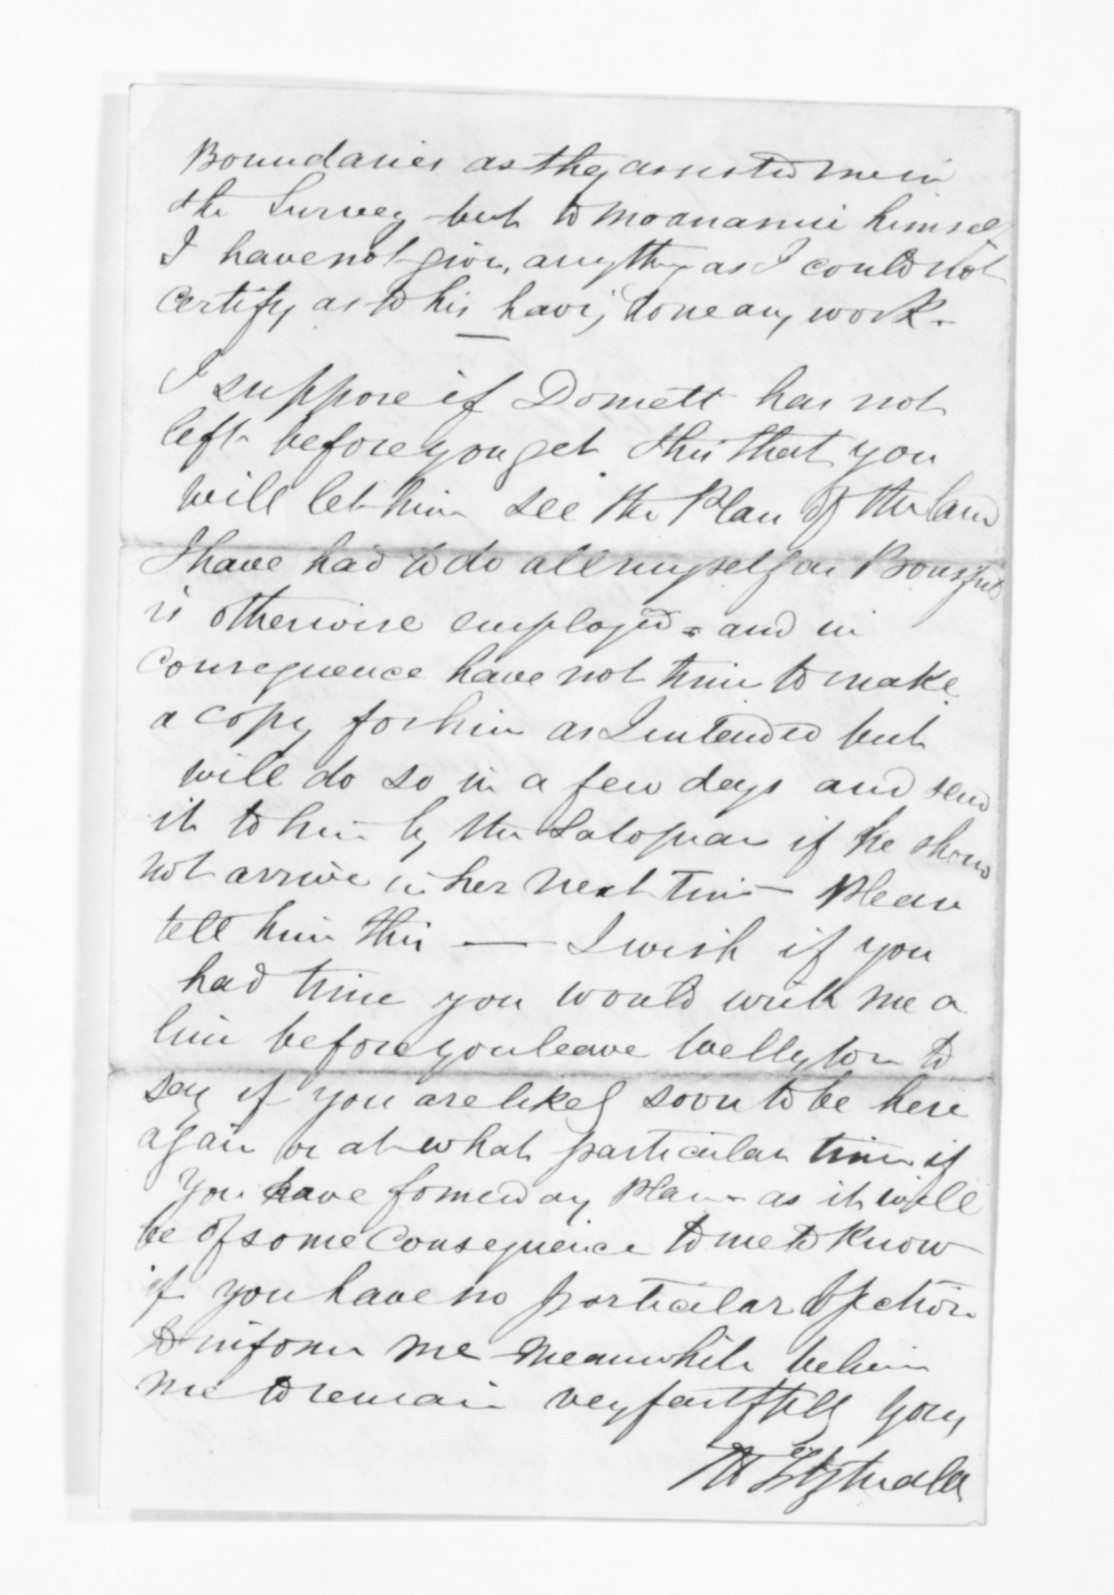 Boundaries as they assisted me in
the Survey but to Moananui himself
I have not given anything as I could not
certify as to his having done any work.
I suppose if Domett has not
left before you get this that you
will let him see the Plan of the land
I have had to do all myself as Bousfield
is otherwise employed - and in
consequence have not time to make
a copy for him as I intended but
will do so in a few days and send
it to him by the Salopian if he should
not arrive in her next time - Please
tell him this — I wish if you
had time you would write me a
line before you leave Wellington to
say if you are likely soon to be here
again or at what particular time if
you have formed any plans as it will
be of some consequence to me to know
if you have no particular objection
to inform me meanwhile believe
me to remain very faithfully yours
M Fitzgerald